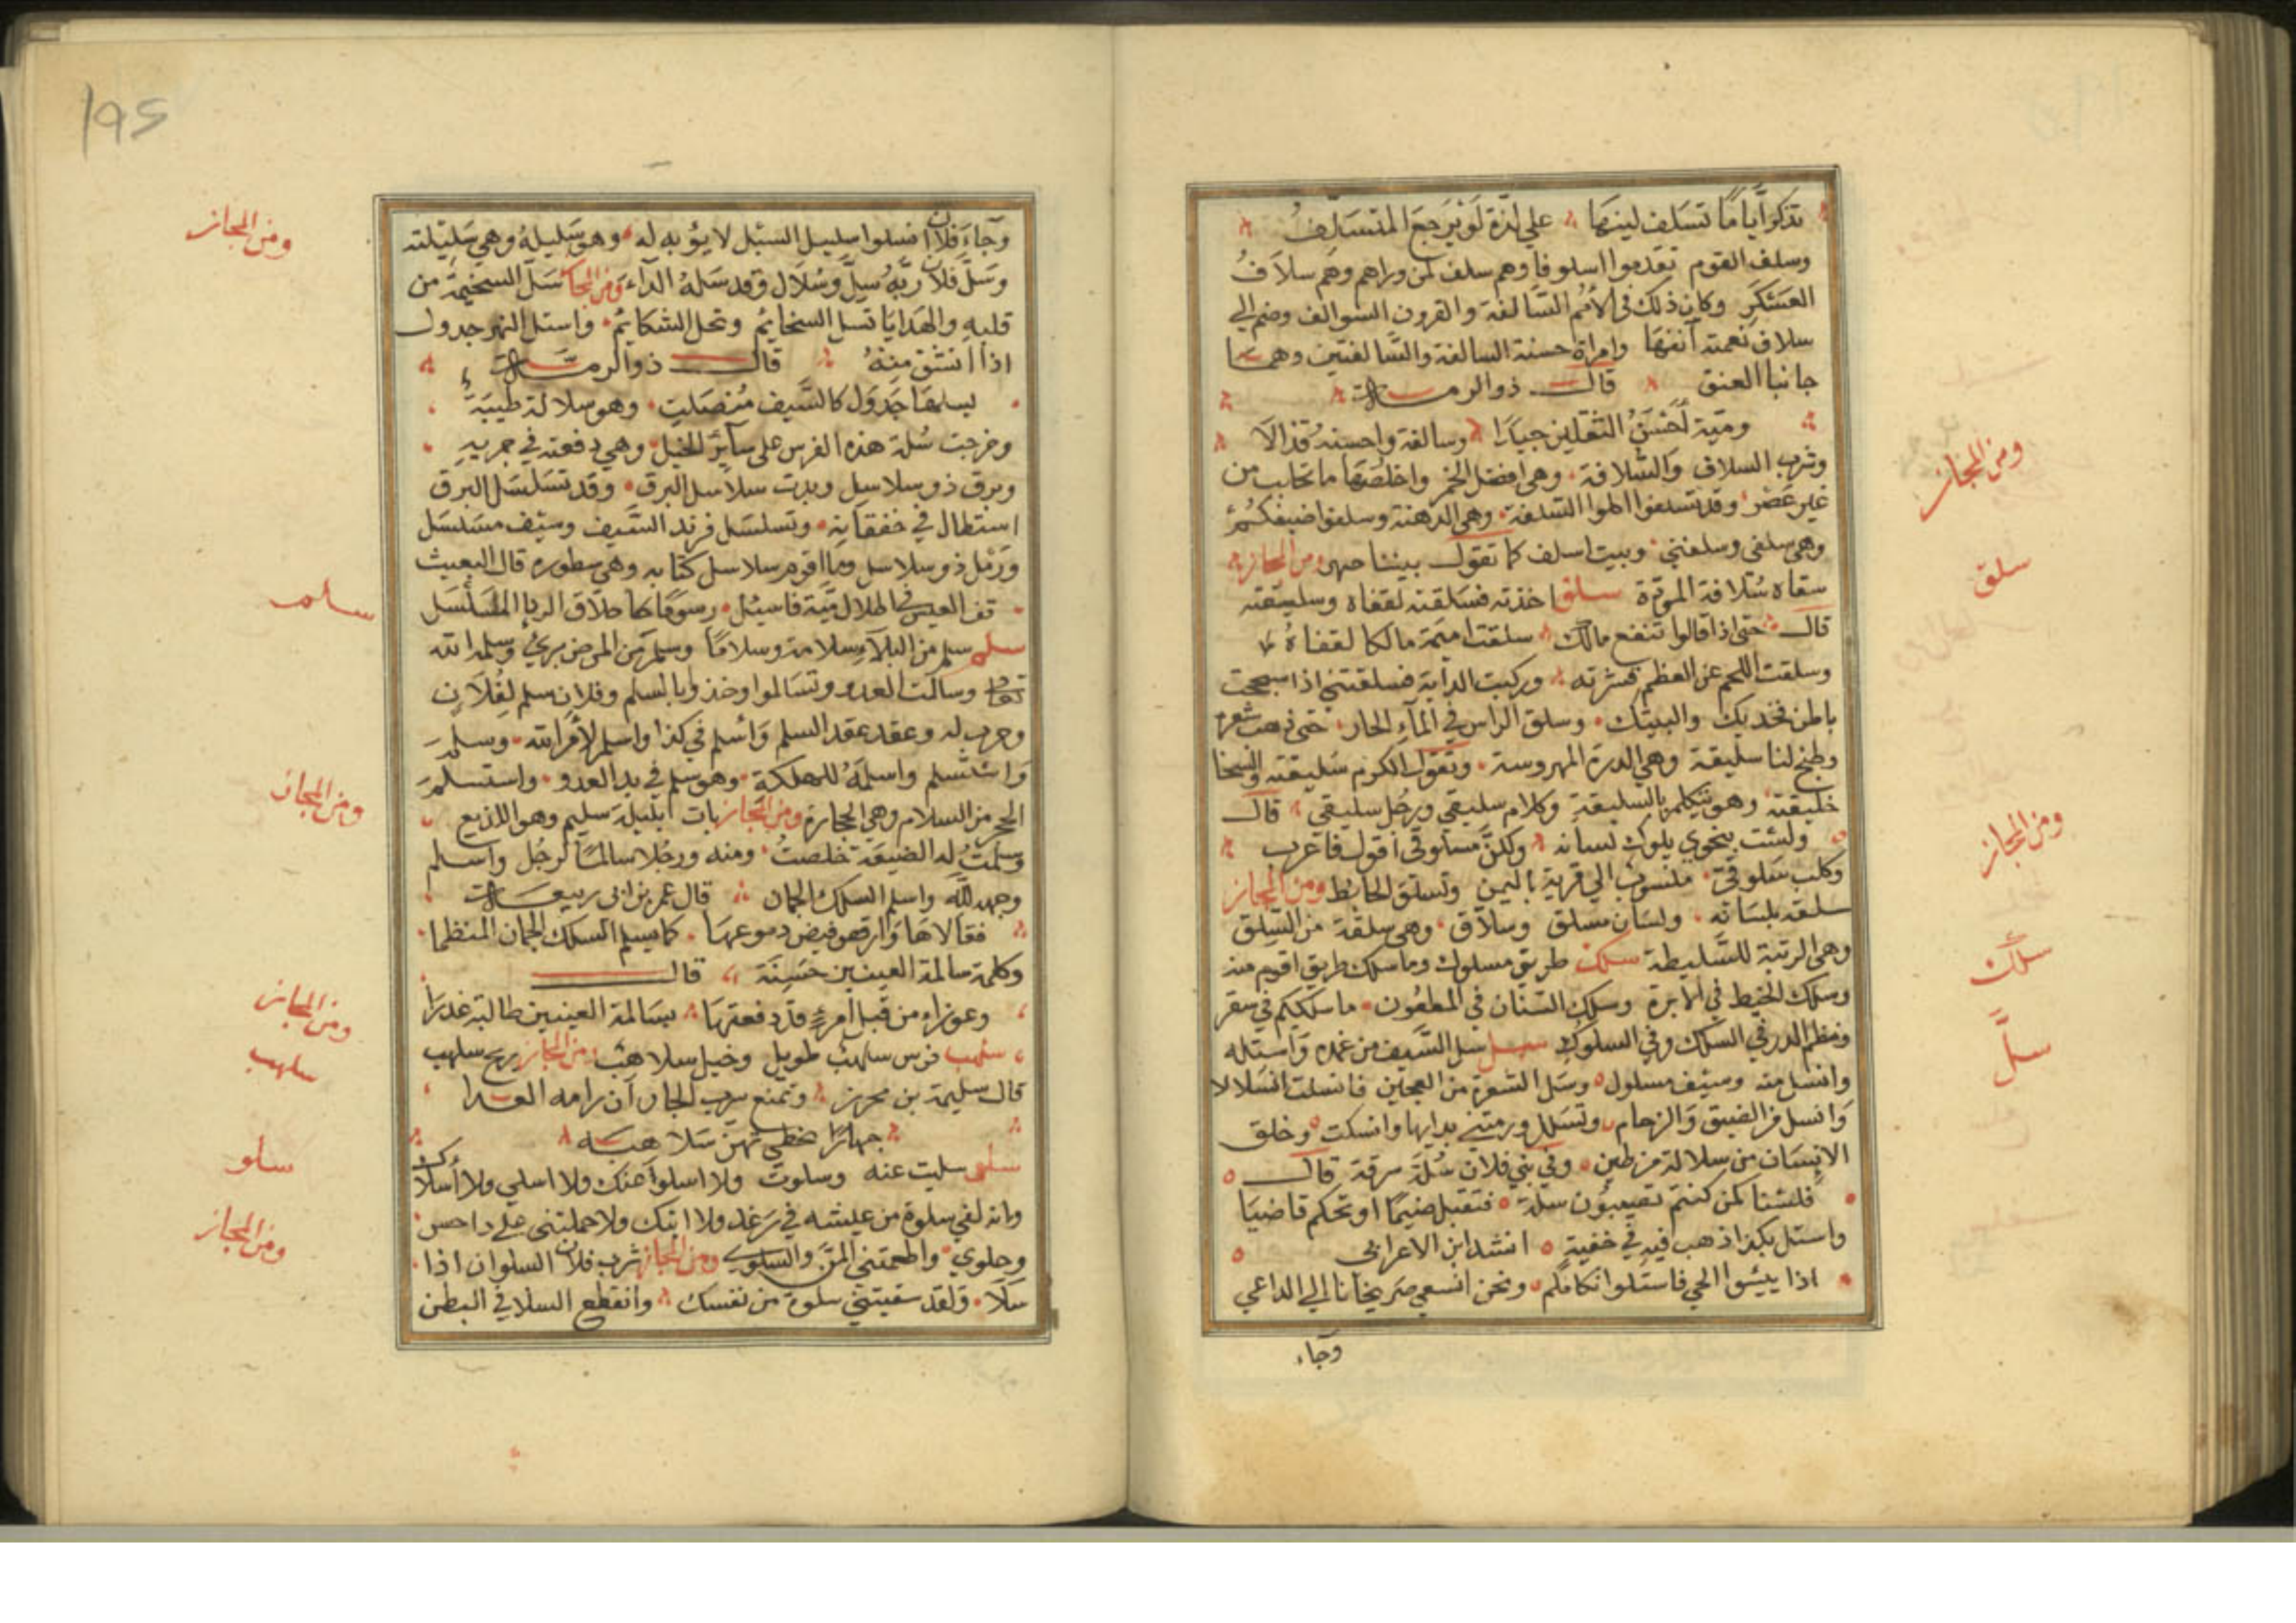 تذكر أياما تسلف لينها على لذة لو يرجع المتسلف
وسلف القوم تقدموا سلوفا وهم سلف لمن وراهم وهم سلاف
العسكر وكان ذلك في الأمم السالفة والقرون السوالف وضم إلى
سلاف نعمته آنفها وامراة حسنة السالفة والسالفتين وهما
جانبا العنق قال ذو الرمة
ومية أحسن الثقلين جيدا وسالفة واحسنه قذالا
وشرب السلاف والسلافة وهي افضل الخمر واخلصها ما تحلب من
غير عصر وقد تسلفوا اكلوا السلفة وهي اللهنة وسلفوا ضيفكم
وهي سلفى وسلفتي وبيت اسلف كما تقول بيننا صهر ومن المجاز
سقاه سلافة الموتة سلق اخذته فسلقته لقفاه وسلقيته
قال حتى اذا قالوا تنفع مالك سلقت اميمة مالكا لقفاه
وسلقت اللحم عن العظم قشرته وركبت الدابة فسلقتني اذا سحجت
باطن فخديك والييتك وسلق الراس في المآء الحار حتى ذهب شعره
وطبخ لنا سليقة وهي الذرة المهروسة وتقول الكرم سليقته والسخا
خليقته وهو يتكلم بالسليقية وكلام سليقي ورجل سليقي قال
ولست بنحوي يلوك لسانه ولكن سليقي أقول فاعرب
وكلب سلوقي منسوب الي قرية باليمن وتسلق الحائط ومن المجاز
سلقه بلسانه ولسان مسلق وسلاق وهي سلقة من السلق
وهي الذئبة للسليطة سلك طريق مسلوك وما سلك طريق اقوم منه
وسلك الخيط في الابرة وسلك السنان في المطعون ما سلككم في سقر
ونظم الدر في السلك وفي السلوك سلل سل السيف من غمده واستله
وانسل منه وسيف مسلول وسل الشعرة من العجين فانسلت انسلالا
وانسل من الضيق والزحام وتسلل ورمتني بدايها وانسلت وخلق
الانسان من سلالة من طين وفي بني فلان سلة سرقة قال
فلسنا كمن كنتم تصيبون سلة فتقبل ضيما او تحكم قاضيا
واستل بكذا ذهب فيه في خفية انشد ابن الاعرابي
اذا بيتوا الحي فاستلوا نكاملهم ونحن انسعى صريخانا الى الداعي
وجاء
ومن المجاز
سلق
ومن المجاز
سلك
سلل
195
وجآء فلان انسلوا سليل السبل لا يؤبه له وهو سليله وهي سليلته
وسل فلان ربه سل وسلال وقد سله الدآء ومن المجاز سل السخيمة من
قلبه والهدايا تسل السخايم وتحل الشكايم واستل النهر جدول
اذا انشق منه قال ذو الرمة
يسلها جدول كالسيف منصلت وهو سلالة طيبة
وخرجت سلة هذه الفرس على سآئر الخيل وهي دفعته في جريه
وبرق ذو سلاسل وبدت سلاسل البرق وقد تسلسل البرق
استطال في خفقانه وتسلسل فرند السيف وسيف مسلسل
ورمل ذو سلاسل وما اقوم سلاسل كتابه وهي سطوره قال البعيث
قف العيس في اطلال مية فاسئل رسوما كاخلاق الردا المسلسل
سلم سلم من البلآء سلامة وسلاما وسلم من المرض بري وسلمه الله
تعالى وسالمت العدو وتسالموا وخذوا بالسلم وفلان سلم لفلان
وحرب له وعقد عقد السلم واسلم في كذا واسلم لأمر الله وسلم
واستسلم واسلمه للهلكة وهو سلم في يد العدو واستلم
الحجر من السلام وهي الحجارة ومن المجاز بات بليلة سليم وهو اللديع
وسلمت له الضيعة خلصت ومنه ورجلا سالما لرجل واسلم
وجهه لله واسلم السلك الجمان قال عمر بن ابي ربيعة
فقالا لها فارفض فيض دموعها كما يسلم السلك الجمان المنظما
وكلمة سالمة العينين حسنة قال
وعوراء من قبل امرء قد دفعتها بسالمة العينين طالبة غدرا
سلهب فرس سلهب طويل وخيل سلاهب ومن المجاز ريح سلهب
قال سليمة بن محرز وتمنع سرب الجار أن رامه العدا
جهارا بخطي تهن سلاهبه
سلى سليت عنه وسلوت ولا اسلوا عنك ولا اسلي ولا أسلاك
وانه لفي سلوة من عيشه في رغد ولا انك ولا حملتني على داحس
وجلوي واطعمتني المن والسلوى ومن المجاز شرب فلان السلوان اذا
سلا ولقد سقيتني سلوة من نفسك وانقطع السلا في البطن
ومن المجاز
سلم
ومن المجاز
ومن المجاز
سلهب
سلو
ومن المجاز